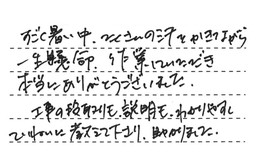 すごく暑い中、たくさんの汗をかきながら
一生懸命、作業していただき
本当にありがとうございました。
工事の段取りも、説明も、わかりやすく
ていねいに教えて下さり、助かりました。